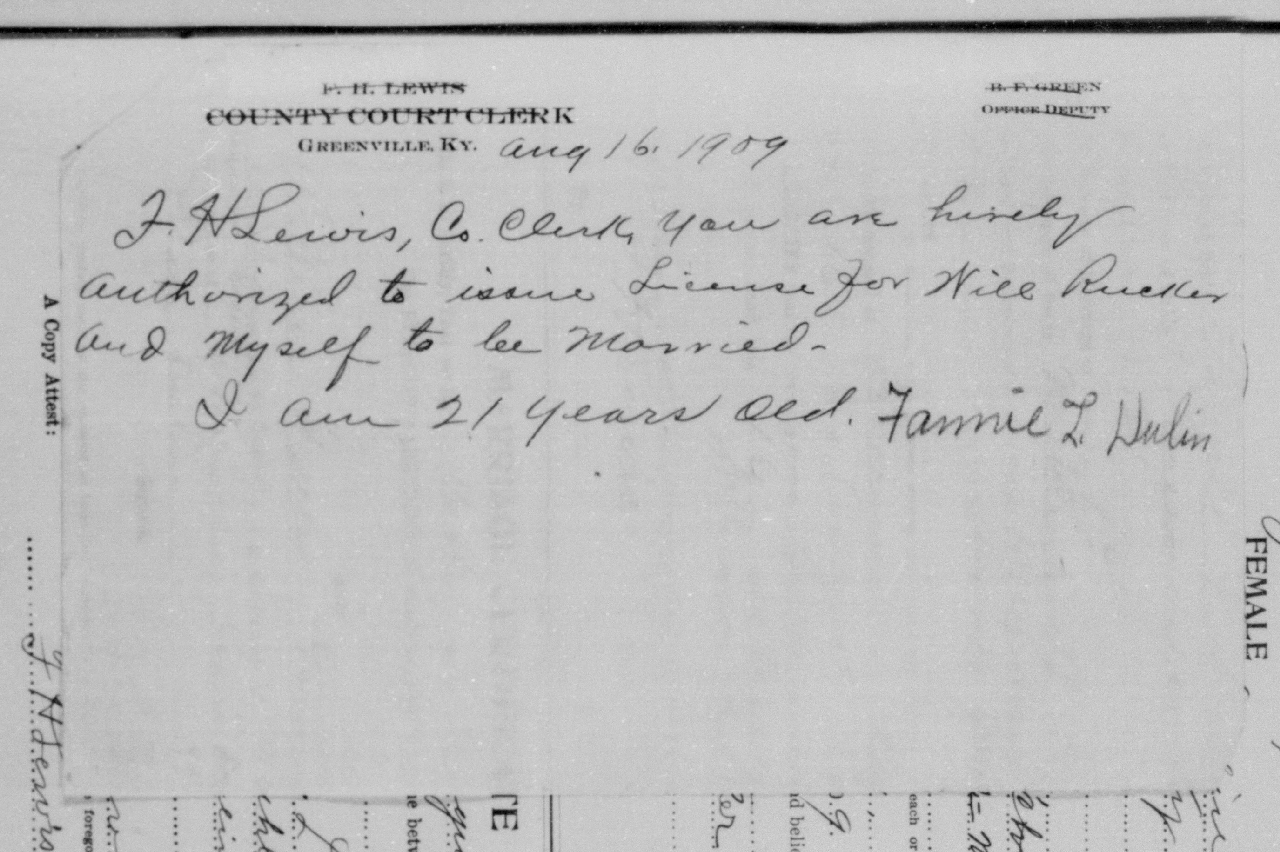 F. H. LEWIS
COUNTY COURT CLERK
GREENVILLE, KY. Aug 16, 1909
B. F. GREEN
OFFICE DEPUTY
F. H Lewis, Co. Clerk, You are hirely
authorized to issue License for Will Rucker
and Myself to be Married-
I am 21 years old. Fannie L Dulin
A Copy Attest:
F H Lewis
FEMALE